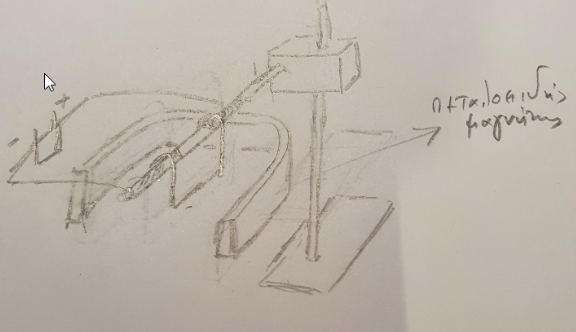 +
-
πεταλοειδής
μαγνήτης